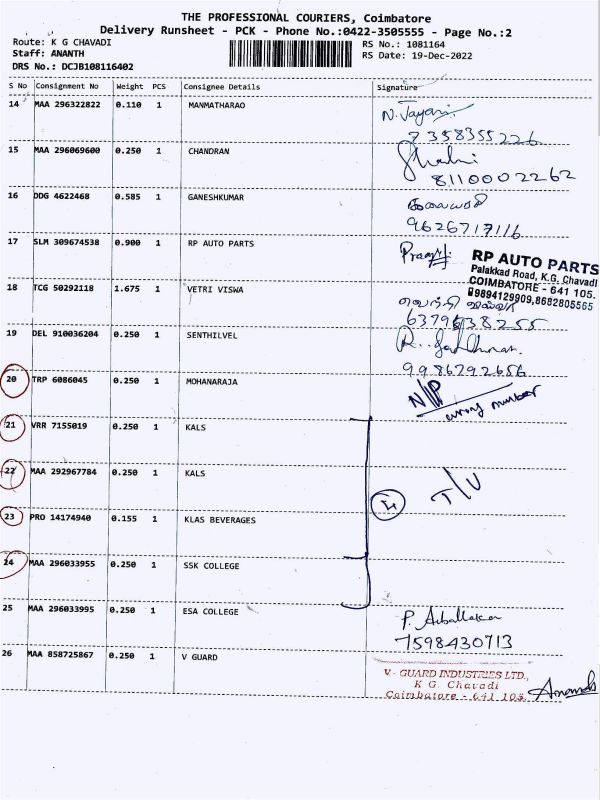 THE PROFESSIONAL COURIERS, Coimbatore
Delivery Runsheet - PCK - Phone No.:0422-3505555 - Page No.:2
Route: K G CHAVADI
Staff: ANANTH
DRS No.: DCJB108116402
RS No.: 1081164
RS Date: 19-Dec-2022
S No Consignment No Weight PCS Consignee Details Signature
14 MAA 296322822 0.110 1 MANMATHARAO N. Jayani
7358355226
15 MAA 296069600 0.250 1 CHANDRAN
8110002262
16 DDG 4622468 0.585 1 GANESHKUMAR
9626717116
17 SLM 309674538 0.900 1 RP AUTO PARTS
RP AUTO PARTS
Palakkad Road, K.G. Chavadi
COIMBATORE - 641 105.
9894129909,8682805565
18 TCG 50292118 1.675 1 VETRI VISWA வெற்றி
6379638255
19 DEL 910036204 0.250 1 SENTHILVEL
9986792656
20 TRP 6086045 0.250 1 MOHANARAJA N/P
wrong number
21 VRR 7155019 0.250 1 KALS
22 MAA 292967784 0.250 1 KALS
T/U
23 PRO 14174940 0.155 1 KLAS BEVERAGES
24 MAA 296033955 0.250 1 SSK COLLEGE
25 MAA 296033995 0.250 1 ESA COLLEGE P.
7598430713
26 MAA 858725867 0.250 1 V GUARD
V- GUARD INDUSTRIES LTD.,
K G. Chavadi
Coimbatore - 641 105.